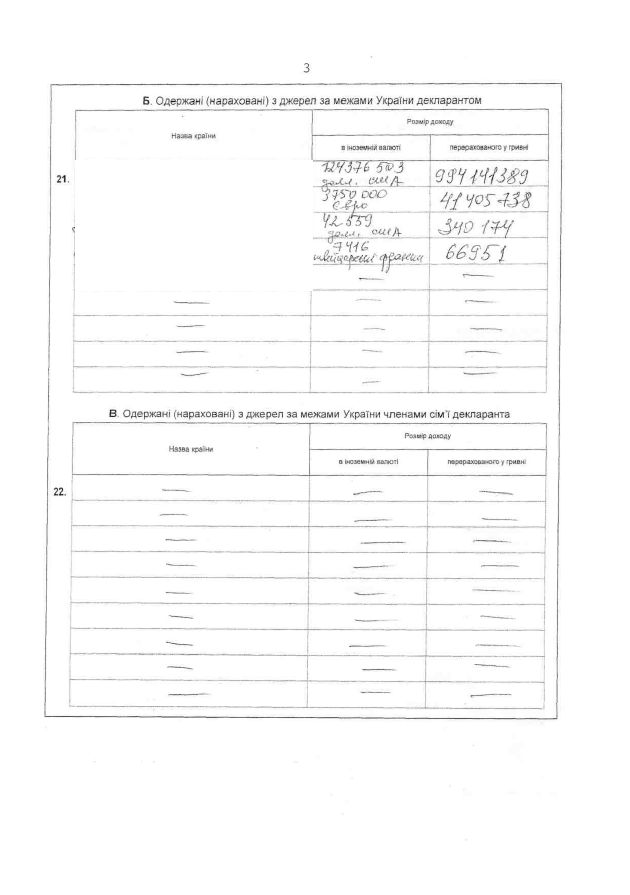 3
Б. Одержані (нараховані) з джерел за межами України декларантом
Назва країни
Розмір доходу
в іноземній валюті
перерахованого у гривні
21.
124376503
долл. США
994141389
3750 000
Євро
41405738
42559
долл. США
340 174
7416
швейцарські франки
66951
В. Одержані (нараховані) з джерел за межами України членами сім’ї декларанта
Назва країни
Розмір доходу
в іноземній валюті
перерахованого у гривні
22.